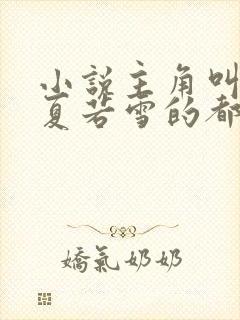 小説主角叫
夏若雪的都
嬌氣奶奶